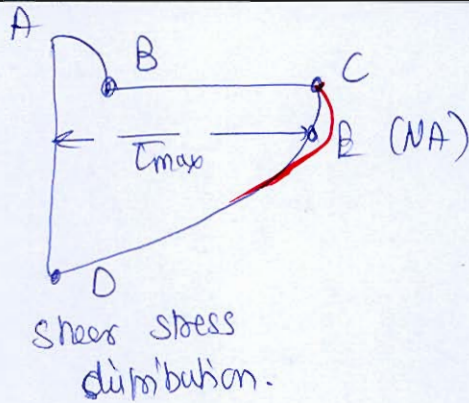 A
B
C
τmax
E (NA)
D
Shear stress
distribution.